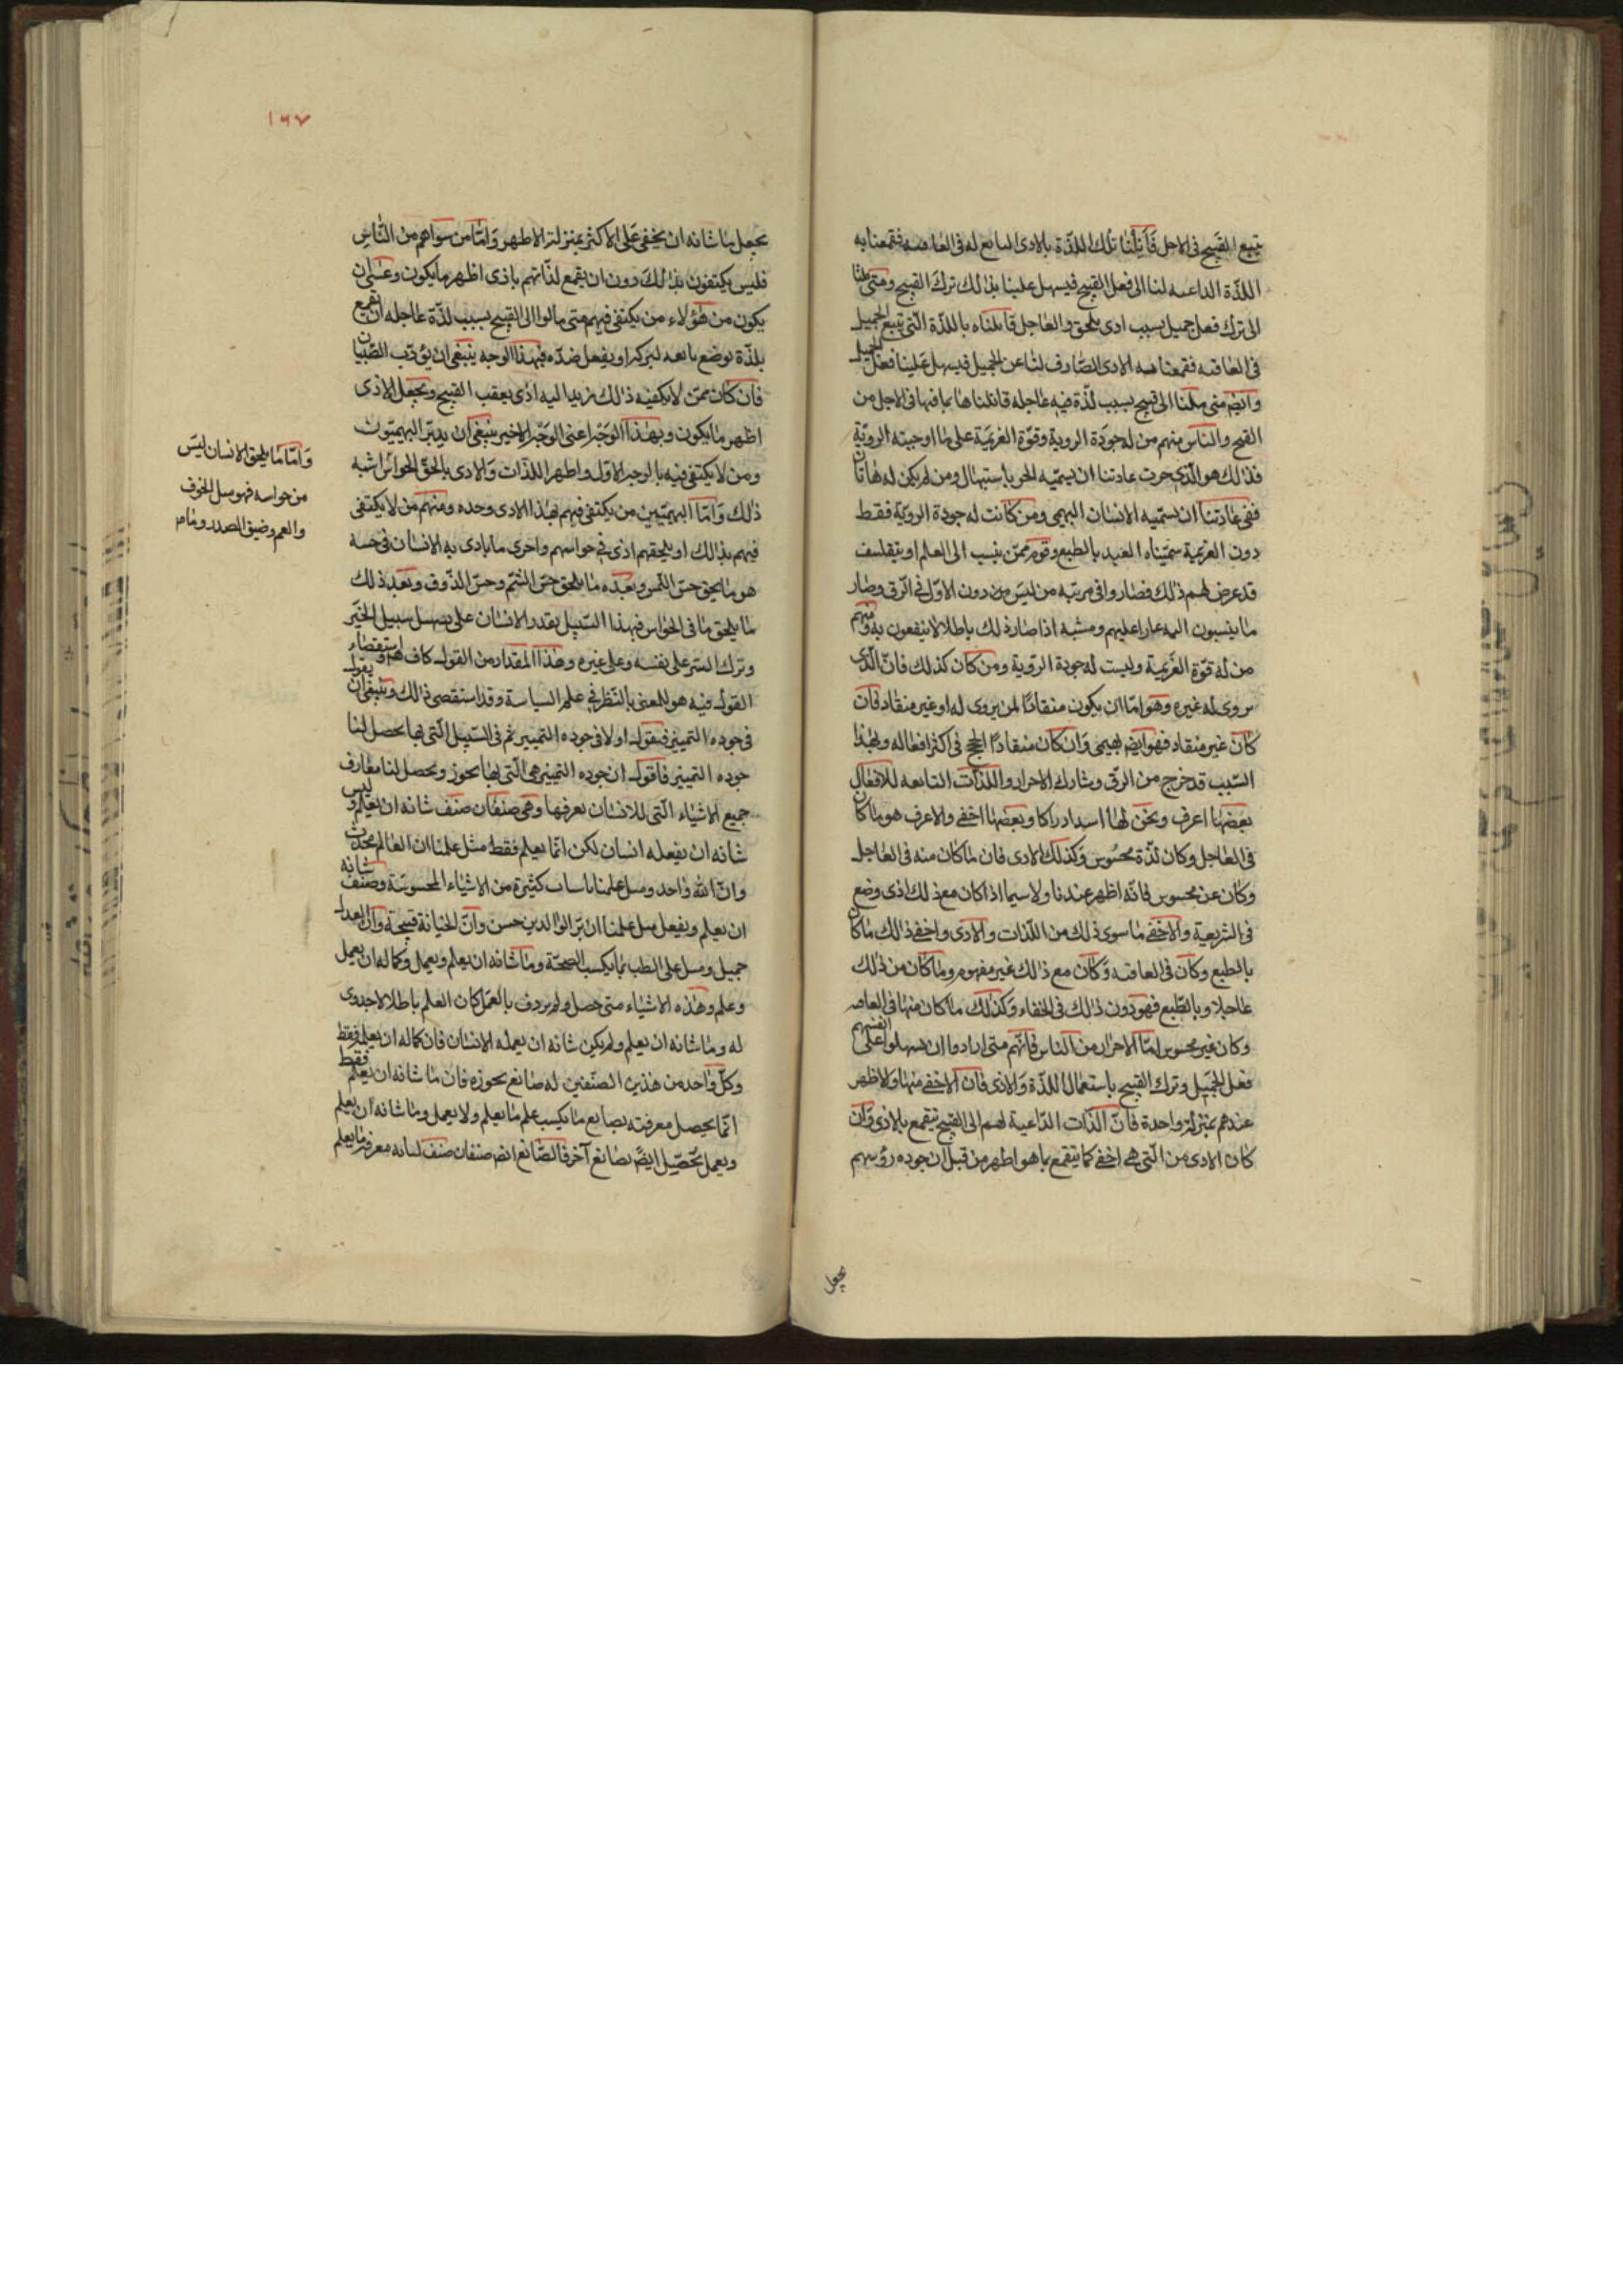 يتبع القبيح في الاجل قابلنا تلك اللذة بالاذى التابع له في العاقبه فقمعنا به
اللذة الداعيه لنا الى فعل القبيح فيسهل علينا بذلك ترك القبيح ومتى ملنا
الى ترك فعل جميل بسبب اذى يلحق في العاجل قابلناه باللذة التي تتبع الجميل
في العاقبه فقمعنا به الاذى الصارف لنا عن الجميل فيسهل علينا فعل الجميل
وايضم متى ملنا الى قبيح بسبب لذة فيه عاجله قابلناها بما فيها في الاجل من
القبح والناس منهم من له جودة الروية وقوة العزيمة على ما اوجبته الروية
فذلك هو الذي جرت عادتنا ان نسميه الحر باستيهال ومن لم يكن له هاتان
ففي عادتنا ان نسميه الانسان البهيمي ومن كانت له جودة الروية فقط
دون العزيمة سميناه العبد بالطبع وقوم ممن ينسب الى العلم او يتفلسف
قد عرض لهم ذلك فصاروا في مرتبه من ليس من دون الاول في الرق وصار
ما ينسبون اليه عارا عليهم ومسبه اذا صار ذلك باطلا لا ينفعون به ومنهم
من له قوة العزيمة وليست له جودة الروية ومن كان كذلك فان الذي
يروى له غيره وهو اما ان يكون منقادا لمن يروى له او غير منقاد فان
كان غير منقاد فهو ايضم بهيمي وان كان منقادا انجح في اكثر افعاله وبهذا
السبب قد خرج من الرق وشارك الاحرار واللذات التابعه للافعال
بعضها اعرف ونحن لها اشد ادراكا وبعضها اخفى والاعرف هو ما كان
في العاجل وكان لذة محسوس وكذلك الاذى فان ما كان منه في العاجل
وكان عن محسوس فانه اظهر عندنا ولا سيما اذا كان مع ذلك اذى وضع
في الشريعية والاخفى ما سوى ذلك من اللذات والاذى واخفى ذلك ما كان
بالطبع وكان في العاقبه وكان مع ذلك غير مفهوم وما كان من ذلك
عاجلا وبالطبع فهو دون ذلك في الخفاء وكذلك ما كان منها في العاقبه
وكان غير محسوس اما الاحرار من الناس فانهم متى ارادوا ان يسهلوا على انفسهم
فعل الجميل وترك القبيح باستعمال اللذة والاذى فان الاخفى منها والاظهر
عندهم بمنزلة واحدة فان الذات الداعية لهم الى القبيح تنقمع بالاذى وان
كان الاذى من التي هي اخفى كما تنقمع بما هو اظهر من قبل ان جوده رؤسهم
يجعل
١٦٧
يجعل ما شانه ان يخفى على الاكثر بمنزلة الاظهر واما من سواهم من الناس
فليس يكتفون بذلك دون ان يقمع لذاتهم باذى اظهر ما يكون وعسى ان
يكون من هؤلاء من يكتفى فيهم متى مالوا الى القبيح بسبب لذة عاجله ان يقمع
بلذة توضع تابعه لتركه او بفعل ضده فبهذا الوجه ينبغي ان يؤدب الصبيان
فان كان ممن لا يكفيه ذلك زيد اليه اذى يعقب القبيح ويجعل الاذى
اظهر ما يكون وبهذا الوجه اعني الوجه الاخير ينبغي ان يدبر البهيميون
ومن لا يكتفي فيه بالوجه الاول واظهر اللذات والاذى ما لحق الحواس اشبه
ذلك واما البهيميين من يكتفى فيهم بهذا الاذى وحده ومنهم من لا يكتفى
فيهم بذلك او يلحقهم اذى في حواسهم واحرى ما يادى به الانسان في حسه
هو ما يلحق حس اللمس وبعده ما يلحق حس الشم وحس الذوق وبعد ذلك
ما يلحق ما في الحواس فبهذا السبيل يقدر الانسان على تسهيل سبيل الخير
وترك الشر على نفسه وعلى غيره وهذا المقدار من القول كاف هم واستقصاء
القول فيه هو للمعنى بالنظر في علم السياسة وقد استقصى ذلك وينبغي ان يقول
في جوده التمييز فنقول اولا في جوده التمييز ثم في السبيل التي بها يحصل لنا
جوده التمييز فاقول ان جوده التمييز هي التي بها نحوز ويحصل لنا معارف
جميع الاشياء التي للانسان يعرفها وهي صنفان صنف شانه ان يعلم وليس
شانه ان يفعله انسان لكن انما يعلم فقط مثل علمنا ان العالم محدث
وان الله واحد ومثل علمنا باسباب كثيرة من الاشياء المحسوسة وصنف شانه
ان يعلم ويفعل مثل علمنا ان بر الوالدين حسن وان الخيانة قبيحة وان العدل
جميل ومثل علم الطب بما يكسب الصحة وما شانه ان يعلم ويعمل وكماله ان يعمل
وعلم وهذه الاشياء متى حصل ولم يردف بالعمل كان العلم باطلا لا جدوى
له وما شانه ان يعلم ولم يكن شانه ان يعمله الانسان فان كماله ان يعلم فقط
وكل واحد من هذين الصنفين له صانع يحوزه فان ما شانه ان يعلم فقط
انما يحصل معرفته بصنايع ما يكسب علم ما يعلم ولا يعمل وما شانه ان يعلم
ويعمل تحصيل ايضا بصنايع آخر فالصنايع ايضم صنفان صنف لنا به معرفة ما يعلم
واما ما يلحق الانسان ليس
من حواسه فهو مثل الخوف
والغم وضيق الصدر وما